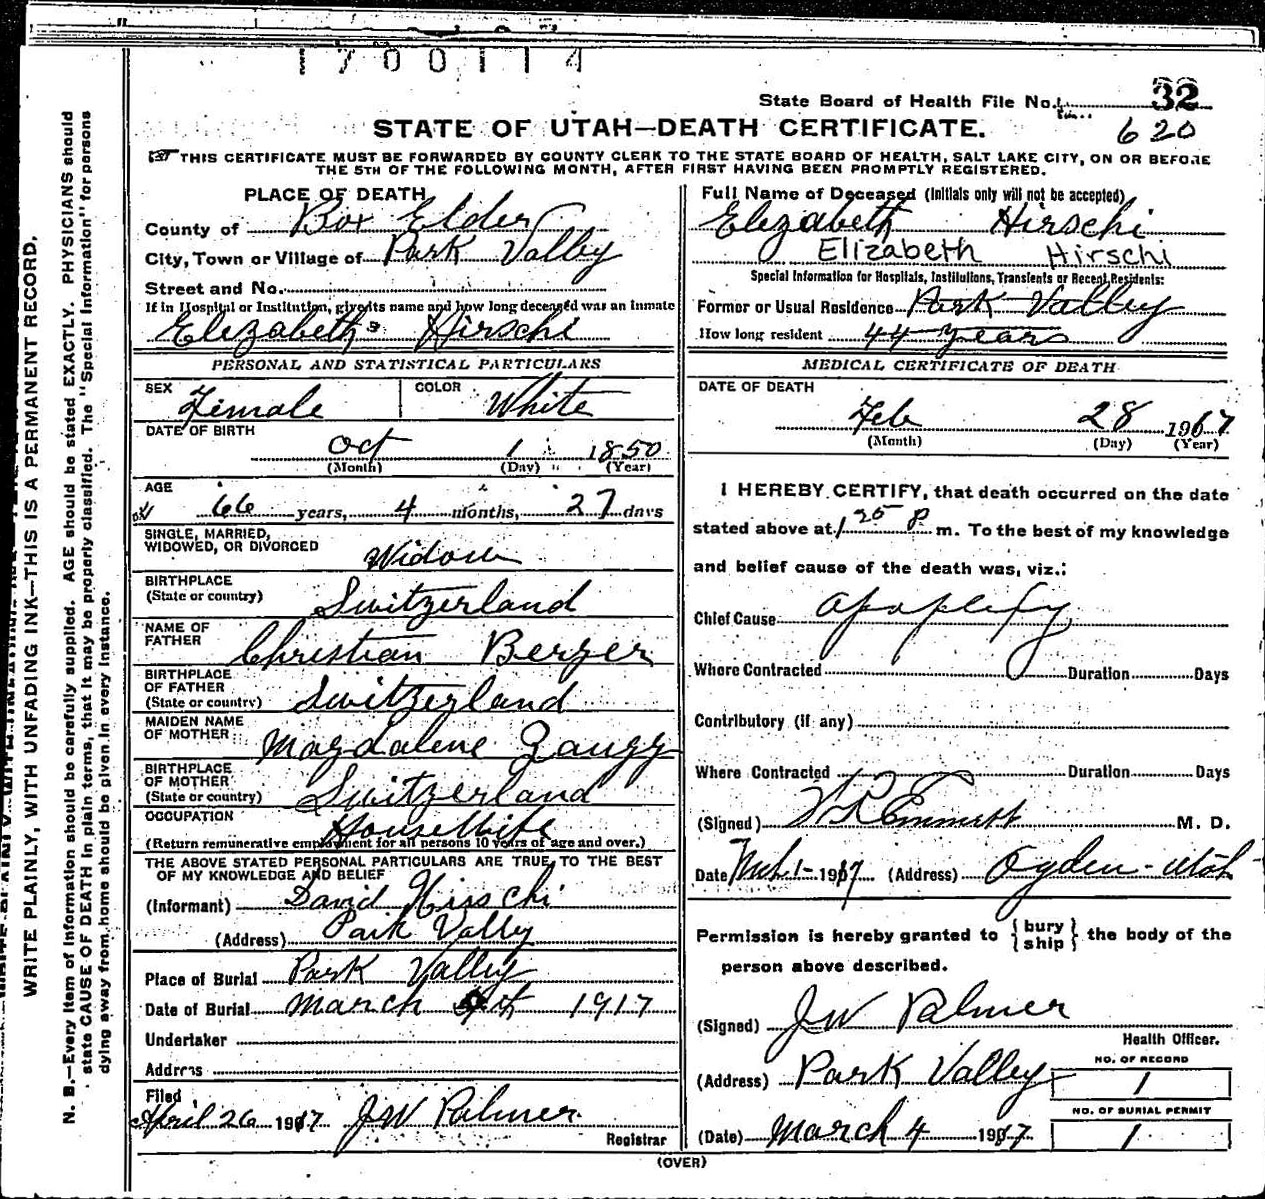 1700114
State Board of Health File No. 32
620
STATE OF UTAH—DEATH CERTIFICATE.
THIS CERTIFICATE MUST BE FORWARDED BY COUNTY CLERK TO THE STATE BOARD OF HEALTH, SALT LAKE CITY, ON OR BEFORE
THE 5TH OF THE FOLLOWING MONTH, AFTER FIRST HAVING BEEN PROMPTLY REGISTERED.
WRITE PLAINLY, WITH UNFADING INK—THIS IS A PERMANENT RECORD.
N. B.—Every item of information should be carefully supplied. AGE should be stated EXACTLY. PHYSICIANS should
state CAUSE OF DEATH in plain terms, that it may be properly classified. The "Special Information" for persons
dying away from home should be given in every instance.
PLACE OF DEATH
County of Box Elder
City, Town or Village of Park Valley
Street and No.
If in Hospital or Institution, give its name and how long deceased was an inmate
Elizabeth Hirschi
PERSONAL AND STATISTICAL PARTICULARS
SEX Female COLOR White
DATE OF BIRTH
Oct 1 1850
(Month) (Day) (Year)
AGE
66 years, 4 months, 27 days
SINGLE, MARRIED,
WIDOWED, OR DIVORCED Widow
BIRTHPLACE
(State or country) Switzerland
NAME OF
FATHER Christian Berger
BIRTHPLACE
OF FATHER
(State or country) Switzerland
MAIDEN NAME
OF MOTHER Magdalene Zaugg
BIRTHPLACE
OF MOTHER
(State or country) Switzerland
OCCUPATION HouseWife
(Return remunerative employment for all persons 10 years of age and over.)
THE ABOVE STATED PERSONAL PARTICULARS ARE TRUE TO THE BEST
OF MY KNOWLEDGE AND BELIEF
(Informant) David Hirschi
(Address) Park Valley
Place of Burial Park Valley
Date of Burial March 4th 1917
Undertaker
Address
Filed
April 26 1917 JW Palmer
Registrar
Full Name of Deceased (Initials only will not be accepted)
Elezabeth Hirschi
Elizabeth Hirschi
Special Information for Hospitals, Institutions, Transients or Recent Residents:
Former or Usual Residence Park Valley
How long resident 44 years
MEDICAL CERTIFICATE OF DEATH
DATE OF DEATH
Feb 28 1917
(Month) (Day) (Year)
I HEREBY CERTIFY, that death occurred on the date
stated above at 1 25 P m. To the best of my knowledge
and belief cause of the death was, viz.:
Chief Cause apoplexy
Where Contracted Duration Days
Contributory (if any)
Where Contracted Duration Days
(Signed) Emmett M. D.
Date Mch 1- 1917 (Address) Ogden - Utah
Permission is hereby granted to {bury
ship} the body of the
person above described.
(Signed) JW Palmer
Health Officer.
(Address) Park Valley
NO. OF RECORD
1
NO. OF BURIAL PERMIT
1
(Date) March 4 1917
(OVER)